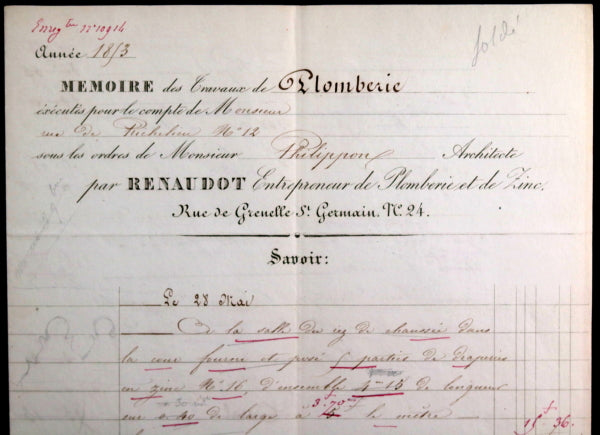 Enreg.^tre N° 10914
Soldé
Année 1853
MEMOIRE des Travaux de Plomberie
éxécutés pour le compte de Monsieur
rue de Richelieu N° 12
sous les ordres de Monsieur Philippon Architecte
par RENAUDOT Entrepreneur de Plomberie et de Zinc,
Rue de Grenelle St. Germain. N.° 24.
Savoir:
Le 28 Mai
De la salle du rez de chaussée dans
la cour fourni et posé 5 parties de
en zinc N° 16, d'ensemble 4m 15 de longueur
sur 0.40 de large à 3f 70 le mètre
15f 36